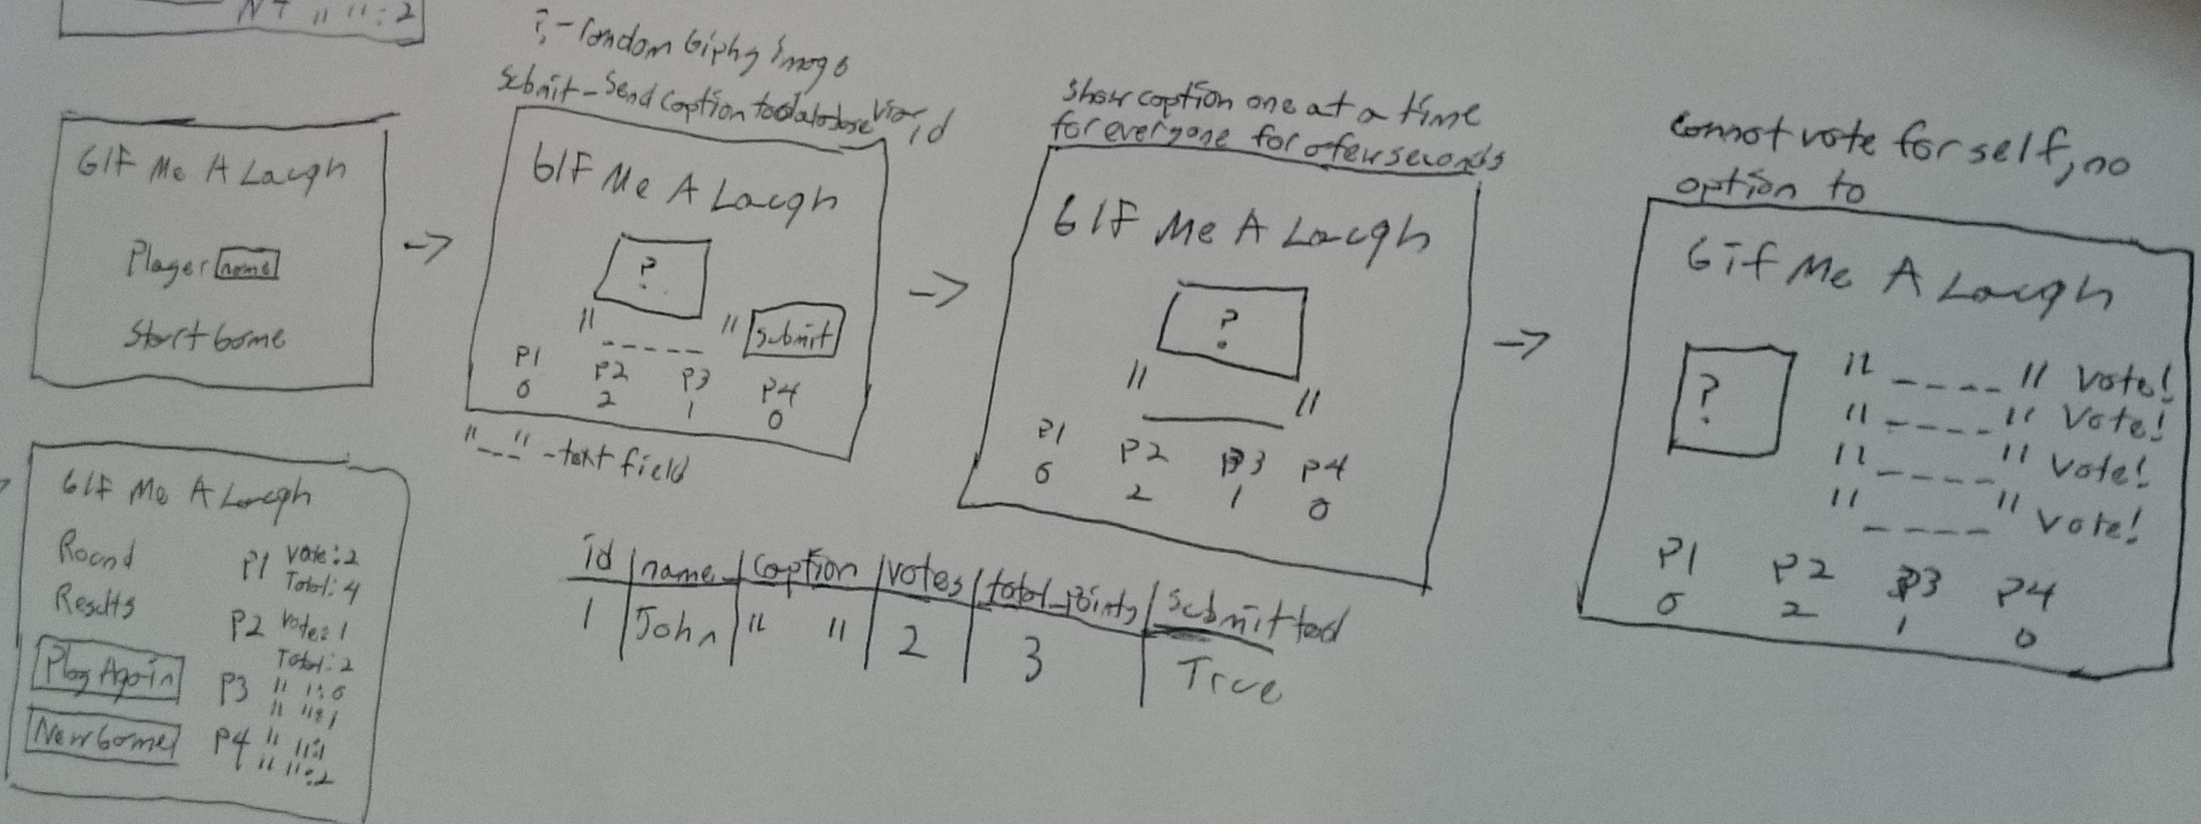 P4 " " : 2
? - random Giphy image
submit - send caption to database via id
GIF Me A Laugh
Player name
Start Game
GIF Me A Laugh
?
" ----- " Submit
P1 P2 P3 P4
0 2 1 0
"_ _ _" - text field
show caption one at a time
for everyone for a few seconds
GIF Me A Laugh
?
" _____ "
P1 P2 P3 P4
0 2 1 0
cannot vote for self, no
option to
Gif Me A Laugh
?
" ---- " Vote!
" ---- " Vote!
" ---- " Vote!
" ---- " Vote!
P1 P2 P3 P4
0 2 1 0
GIF Me A Laugh
Round
Results
Play Again
New Game
P1 Vote: 2
Total: 4
P2 Vote: 1
Total: 2
P3 " " : 0
" " : 1
P4 " " : 1
" " : 2
id name caption votes total_points submitted
1 John " " 2 3 True